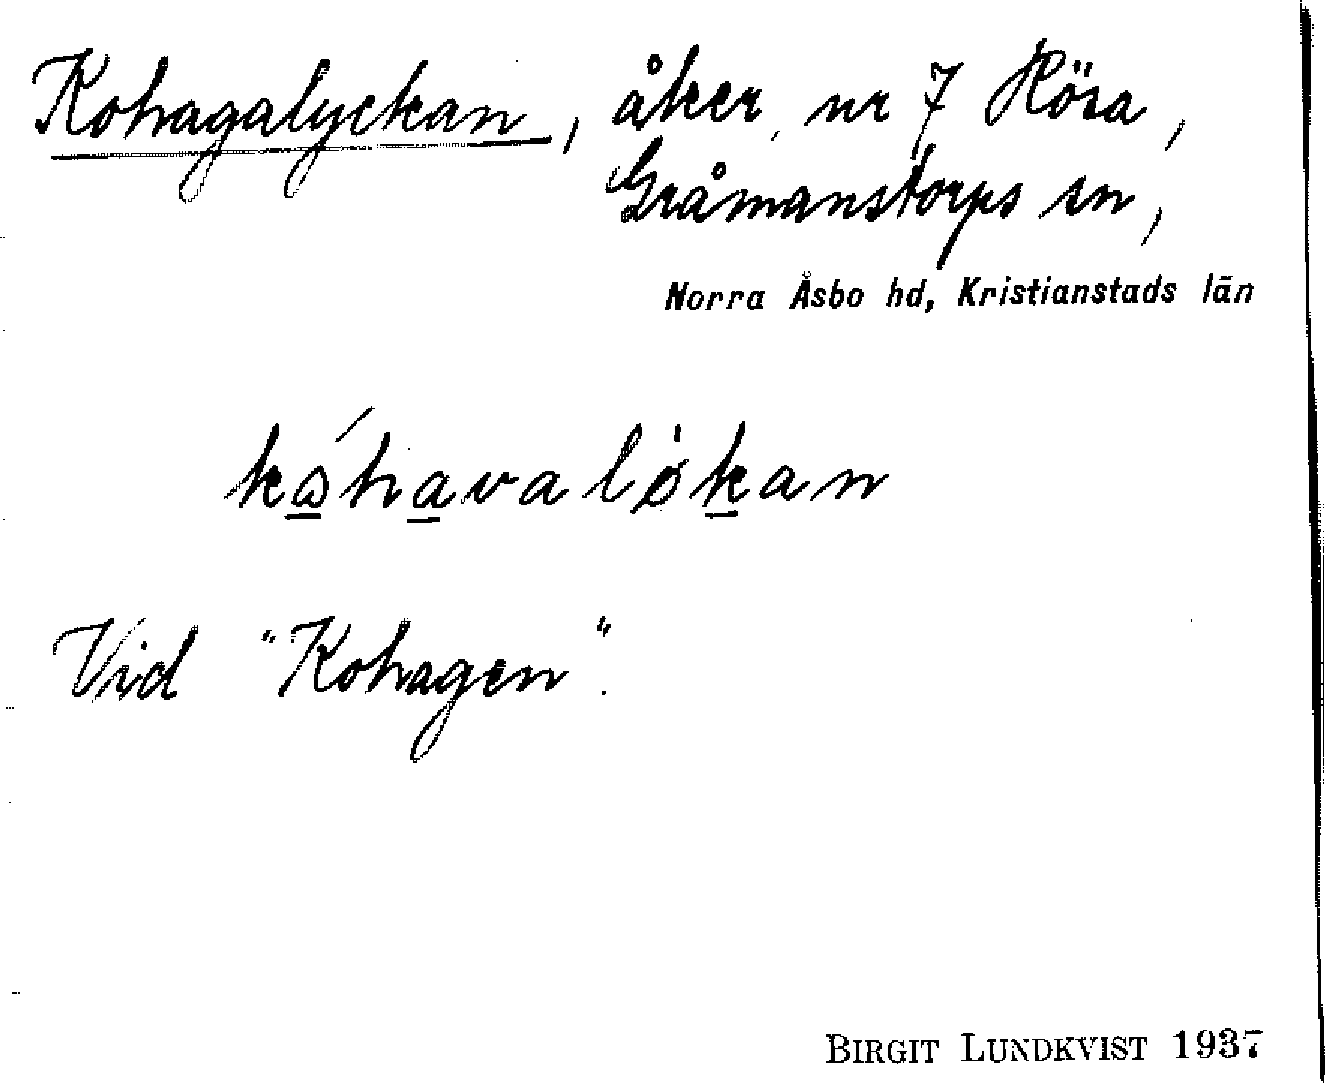 Kohagalyckan, åker nr 7 Hösa,
Gråmanstorps sn,
Norra Åsbo hd, Kristianstads län
kóhavalökan
Vid "Kohagen".
BIRGIT LUNDKVIST 1937